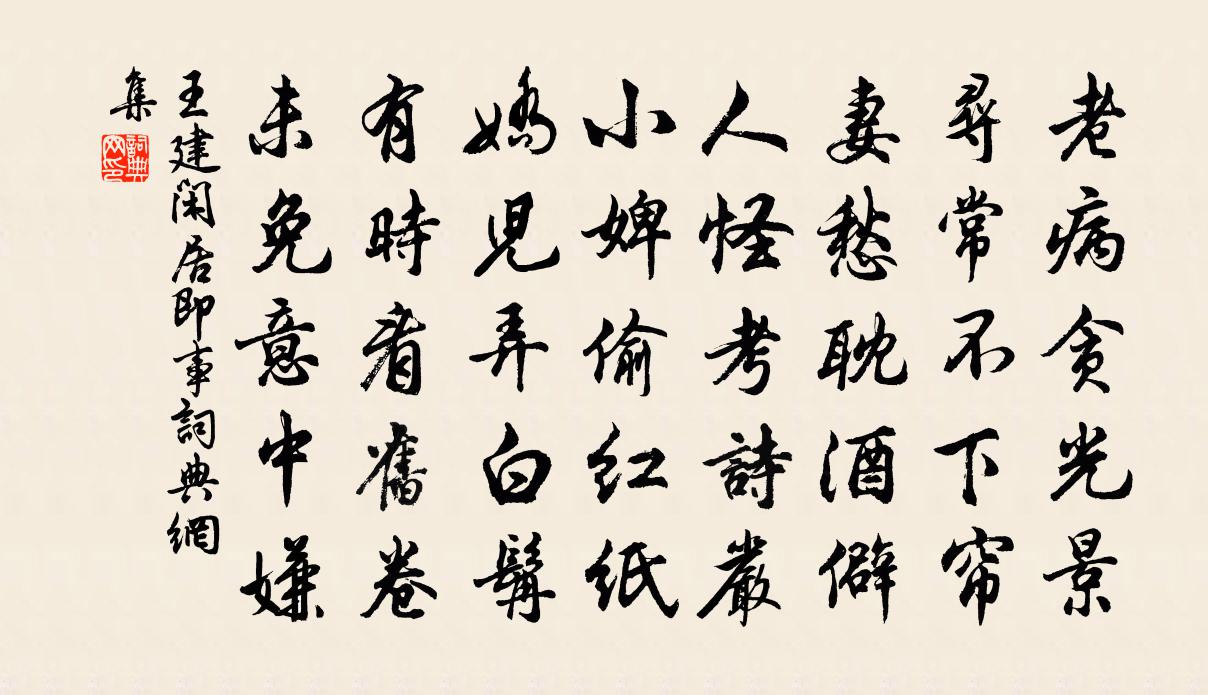 老病貪光景
尋常不下帘
妻愁耽酒僻
人怪考詩嚴
小婢偷紅紙
嬌兒弄白髯
有時看舊卷
未免意中嫌
王建閑居即事詞典網
集
詞典
網印